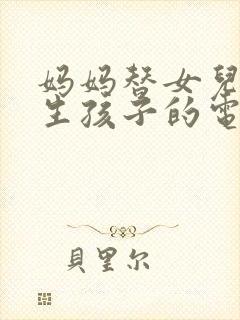 妈妈替女兒
生孩子的電
貝里尔